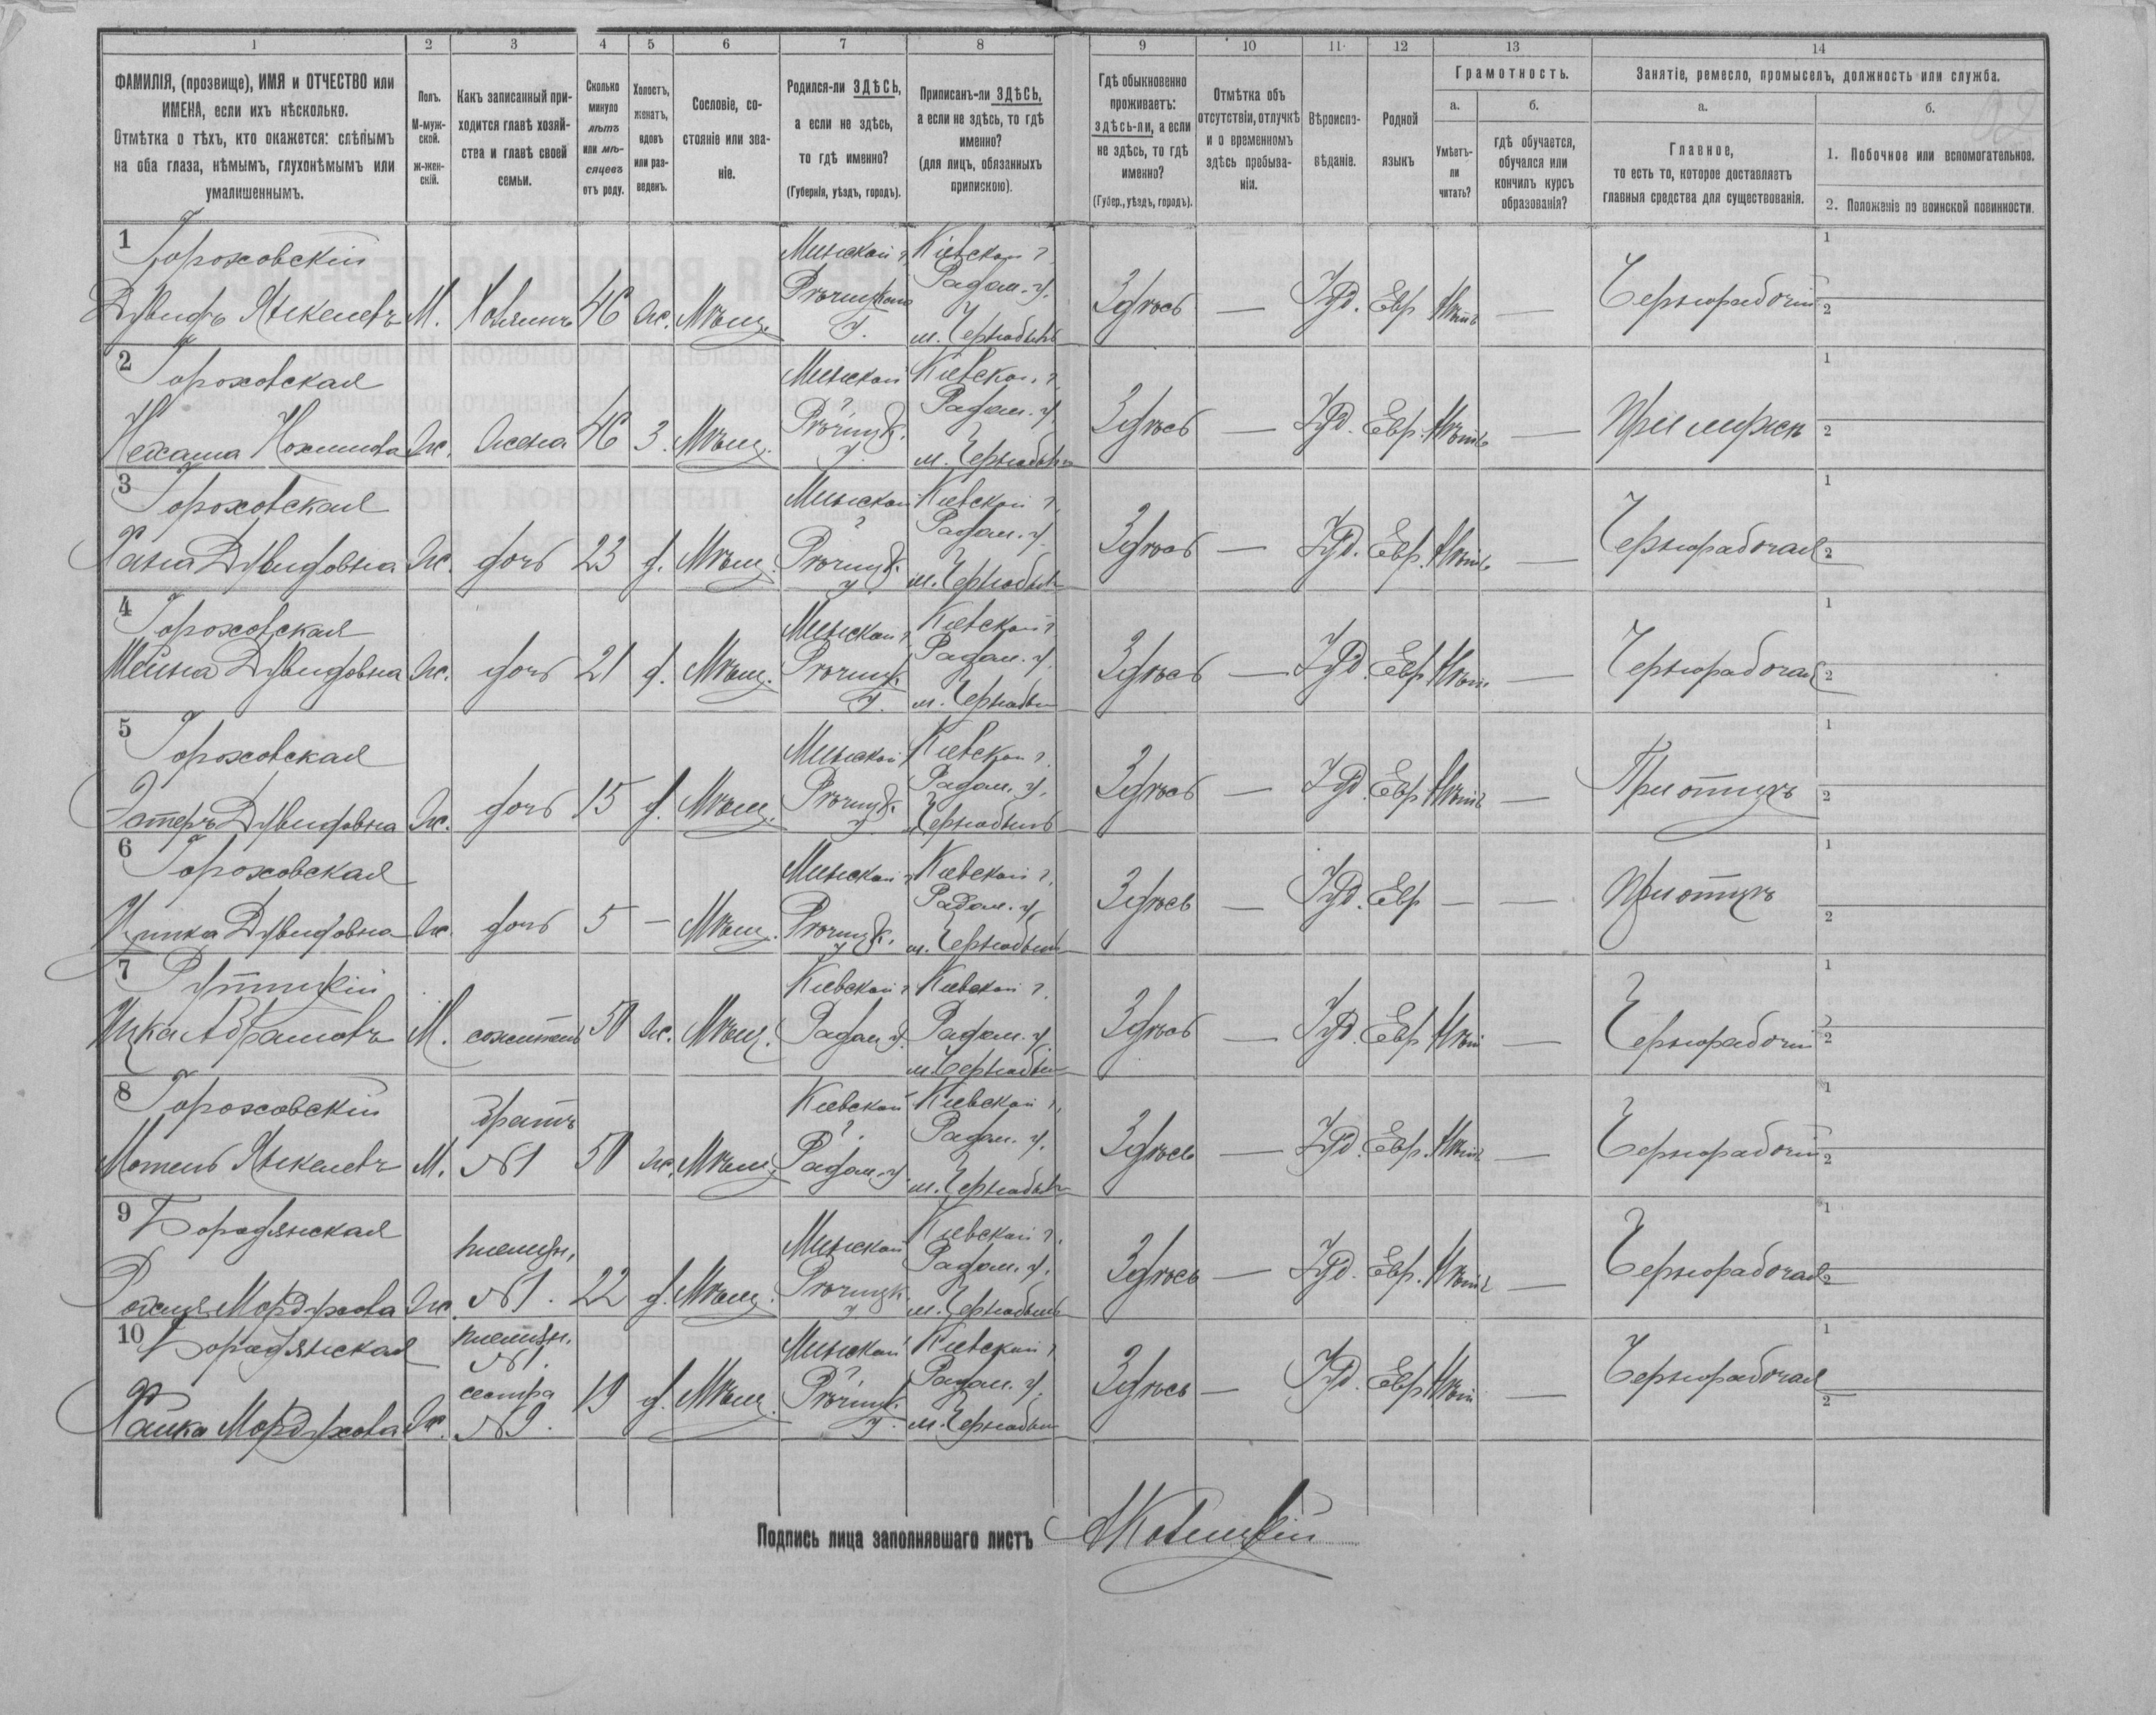 1 2 3 4 5 6 7 8 9 10 11 12 13 14
ФАМИЛІЯ, (прозвище), ИМЯ и ОТЧЕСТВО или
ИМЕНА, если ихъ нѣсколько.
Отмѣтка о тѣхъ, кто окажется: слѣпымъ
на оба глаза, нѣмымъ, глухонѣмымъ или
умалишеннымъ.
Полъ.
М-муж-
ской.
ж-жен-
скій.
Какъ записанный при-
ходится главѣ хозяй-
ства и главѣ своей
семьи.
Сколько
минуло
лѣтъ
или мѣ-
сяцевъ
отъ роду.
Холостъ,
женатъ,
вдовъ
или раз-
веденъ.
Сословіе, со-
стояніе или зва-
ніе.
Родился-ли ЗДѢСЬ,
а если не здѣсь,
то гдѣ именно?
(Губернія, уѣздъ, городъ).
Приписанъ-ли ЗДѢСЬ,
а если не здѣсь, то гдѣ
именно?
(для лицъ, обязанныхъ
припискою).
Гдѣ обыкновенно
проживаетъ:
здѣсь-ли, а если
не здѣсь, то гдѣ
именно?
(Губер., уѣздъ, городъ).
Отмѣтка объ
отсутствіи, отлучкѣ
и о временномъ
здѣсь пребыва-
ніи.
Вѣроиспо-
вѣданіе.
Родной
языкъ
Грамотность.
а.
Умѣетъ-
ли
читать?
б.
гдѣ обучается,
обучался или
кончилъ курсъ
образованія?
Занятіе, ремесло, промыселъ, должность или служба.
а.
Главное,
то есть то, которое доставляетъ
главныя средства для существованія.
б.
1. Побочное или вспомогательное.
2. Положеніе по воинской повинности.
1 Гороховскій Минской г. Кіевской г. 1
Радом. у.
Дувидъ Янкелевъ М. Хозяинъ 46 ж. Мѣщ. Рѣчицкаго у. м. Чернобыль Здѣсь — Іуд. Евр. Нѣтъ — Чернорабочій 2
2 Гороховская Минской г. Кіевской г. 1
Радом. у.
Нехама Нохимова Ж. Жена 46 З. Мѣщ. Рѣчицк. у. м. Чернобыль Здѣсь — Іуд. Евр. Нѣтъ — При мужѣ 2
3 Гороховская Минской г. Кіевской г. 1
Радом. у.
Хана Дувидовна Ж. дочь 23 д. Мѣщ. Рѣчицк. у. м. Чернобыль Здѣсь — Іуд. Евр. Нѣтъ — Чернорабочая 2
4 Гороховская Минской г. Кіевской г. 1
Радом. у.
Шейна Дувидовна Ж. дочь 21 д. Мѣщ. Рѣчицк. у. м. Чернобыль Здѣсь — Іуд. Евр. Нѣтъ — Чернорабочая 2
5 Гороховская Минской г. Кіевской г. 1
Радом. у.
Эстеръ Дувидовна Ж. дочь 15 д. Мѣщ. Рѣчицк. у. Чернобыль Здѣсь — Іуд. Евр. Нѣтъ — При отцѣ 2
6 Гороховская Минской г. Кіевской г. 1
Радом. у.
Ципка Дувидовна Ж. дочь 5 — Мѣщ. Рѣчицк. у. м. Чернобыль Здѣсь — Іуд. Евр — — При отцѣ 2
7 Кіевской г. Кіевской г. 1
Ицка Абрамовъ М. сожитель 50 ж. Мѣщ. Радом. у. Радом. у. м. Чернобыль Здѣсь — Іуд. Евр Нѣтъ — Чернорабочій 2
8 Гороховскій братъ Кіевской г. Кіевской г. 1
Радом. у.
Мотель Янкелевъ М. №1 50 ж. Мѣщ. Радом. у. м. Чернобыль Здѣсь — Іуд. Евр. Нѣтъ — Чернорабочій 2
9 Бородянская племян. Минской Кіевской г. 1
Радом. у.
Мордухова Ж. №1. 22 д. Мѣщ. Рѣчицк. у. м. Чернобыль Здѣсь — Іуд. Евр. Нѣтъ — Чернорабочая 2
10 Бородянская племян. №1. Минской г. Кіевской г. 1
сестра Радом. у.
Хайка Мордухова Ж. №9. 19 д. Мѣщ. Рѣчицк. у. м. Чернобыль Здѣсь — Іуд. Евр Нѣтъ — Чернорабочая 2
Подпись лица заполнявшаго листъ